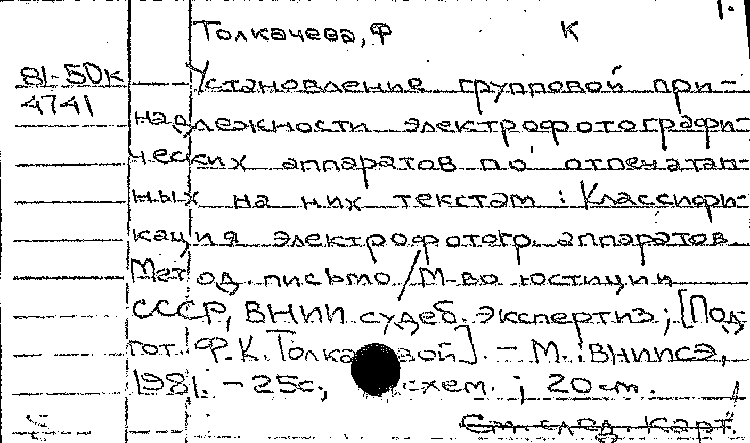 1.
Толкачева, Ф К
81-50к Установление групповой при-
4741 надлежности электрофотографи-
ческих аппаратов по отпечатан-
ных на них текстам : Классифи-
кация электрофотогр. аппаратов
Метод. письмо / М-во юстиции
СССР, ВНИИ судеб. экспертиз; [Под-
гот. Ф. К. Толкачевой]. - М. : ВНИИСЭ,
1981. - 25с., схем. ; 20 см.
См. след. карт.